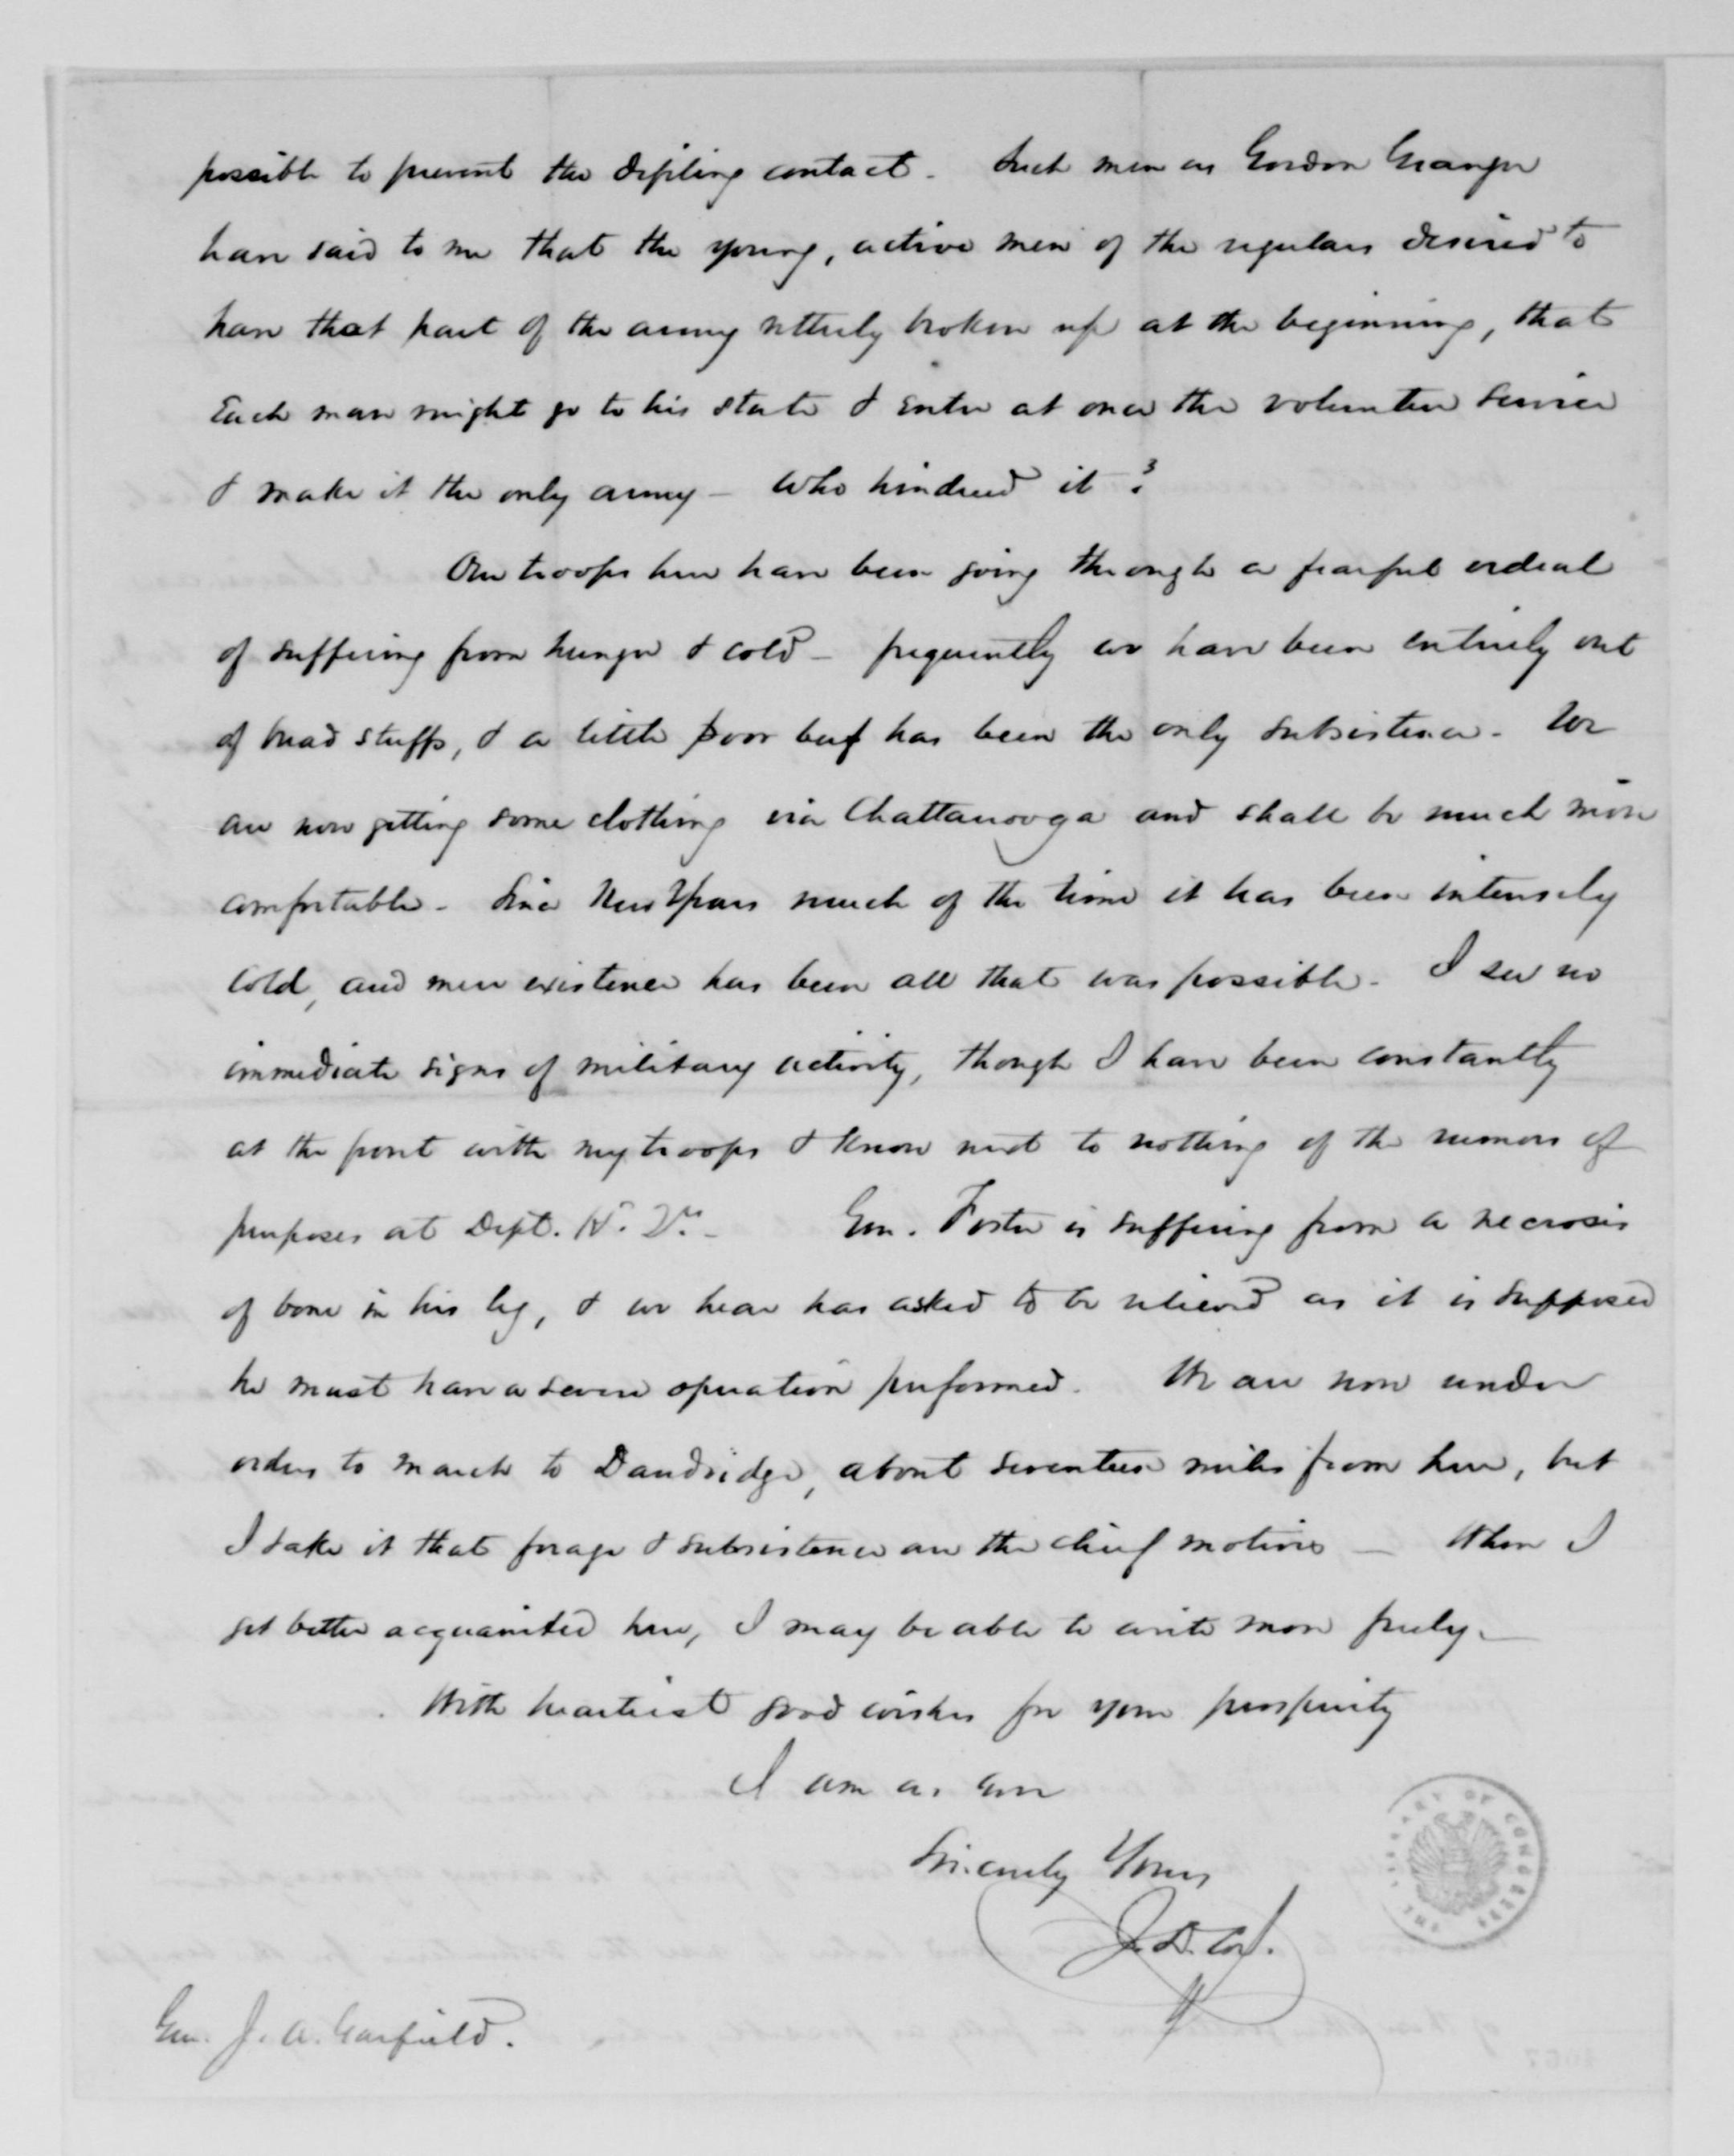 possible to prevent the defiling contact. Such men as Gordon Granger
have said to me that the young, active men of the regulars desired to
have that part of the army utterly broken up at the beginning, that
Each man might go to his state & enter at once the volunteer service
& make it the only army – Who hindered it?
Our troops here have been going through a fearful ordeal
of suffering from hunger & cold – frequently we have been entirely out
of bread stuffs, & a little poor beef has been the only subsistence. We
are now getting some clothing via Chattanooga and shall be much more
comfortable. Since New Years much of the time it has been intensely
cold, and mere existence has been all that was possible. I see no
immediate signs of military activity, though I have been constantly
at the front with my troops & know next to nothing of the rumors of
purposes at Dept. Hd. Qrs. – Gen. Foster is suffering from a necrosis
of bone in his leg, & we hear has asked to be relieved as it is supposed
he must have a severe operation performed. We are now under
orders to march to Dandridge, about seventeen miles from here, but
I take it that forage & subsistence are the chief motives — When I
get better acquainted here, I may be able to write more freely. —
With heartiest good wishes for your prosperity
I am as ever
Sincerely Yours
J. D. Cox.
Gen. J. A. Garfield.
THE LIBRARY OF CONGRESS